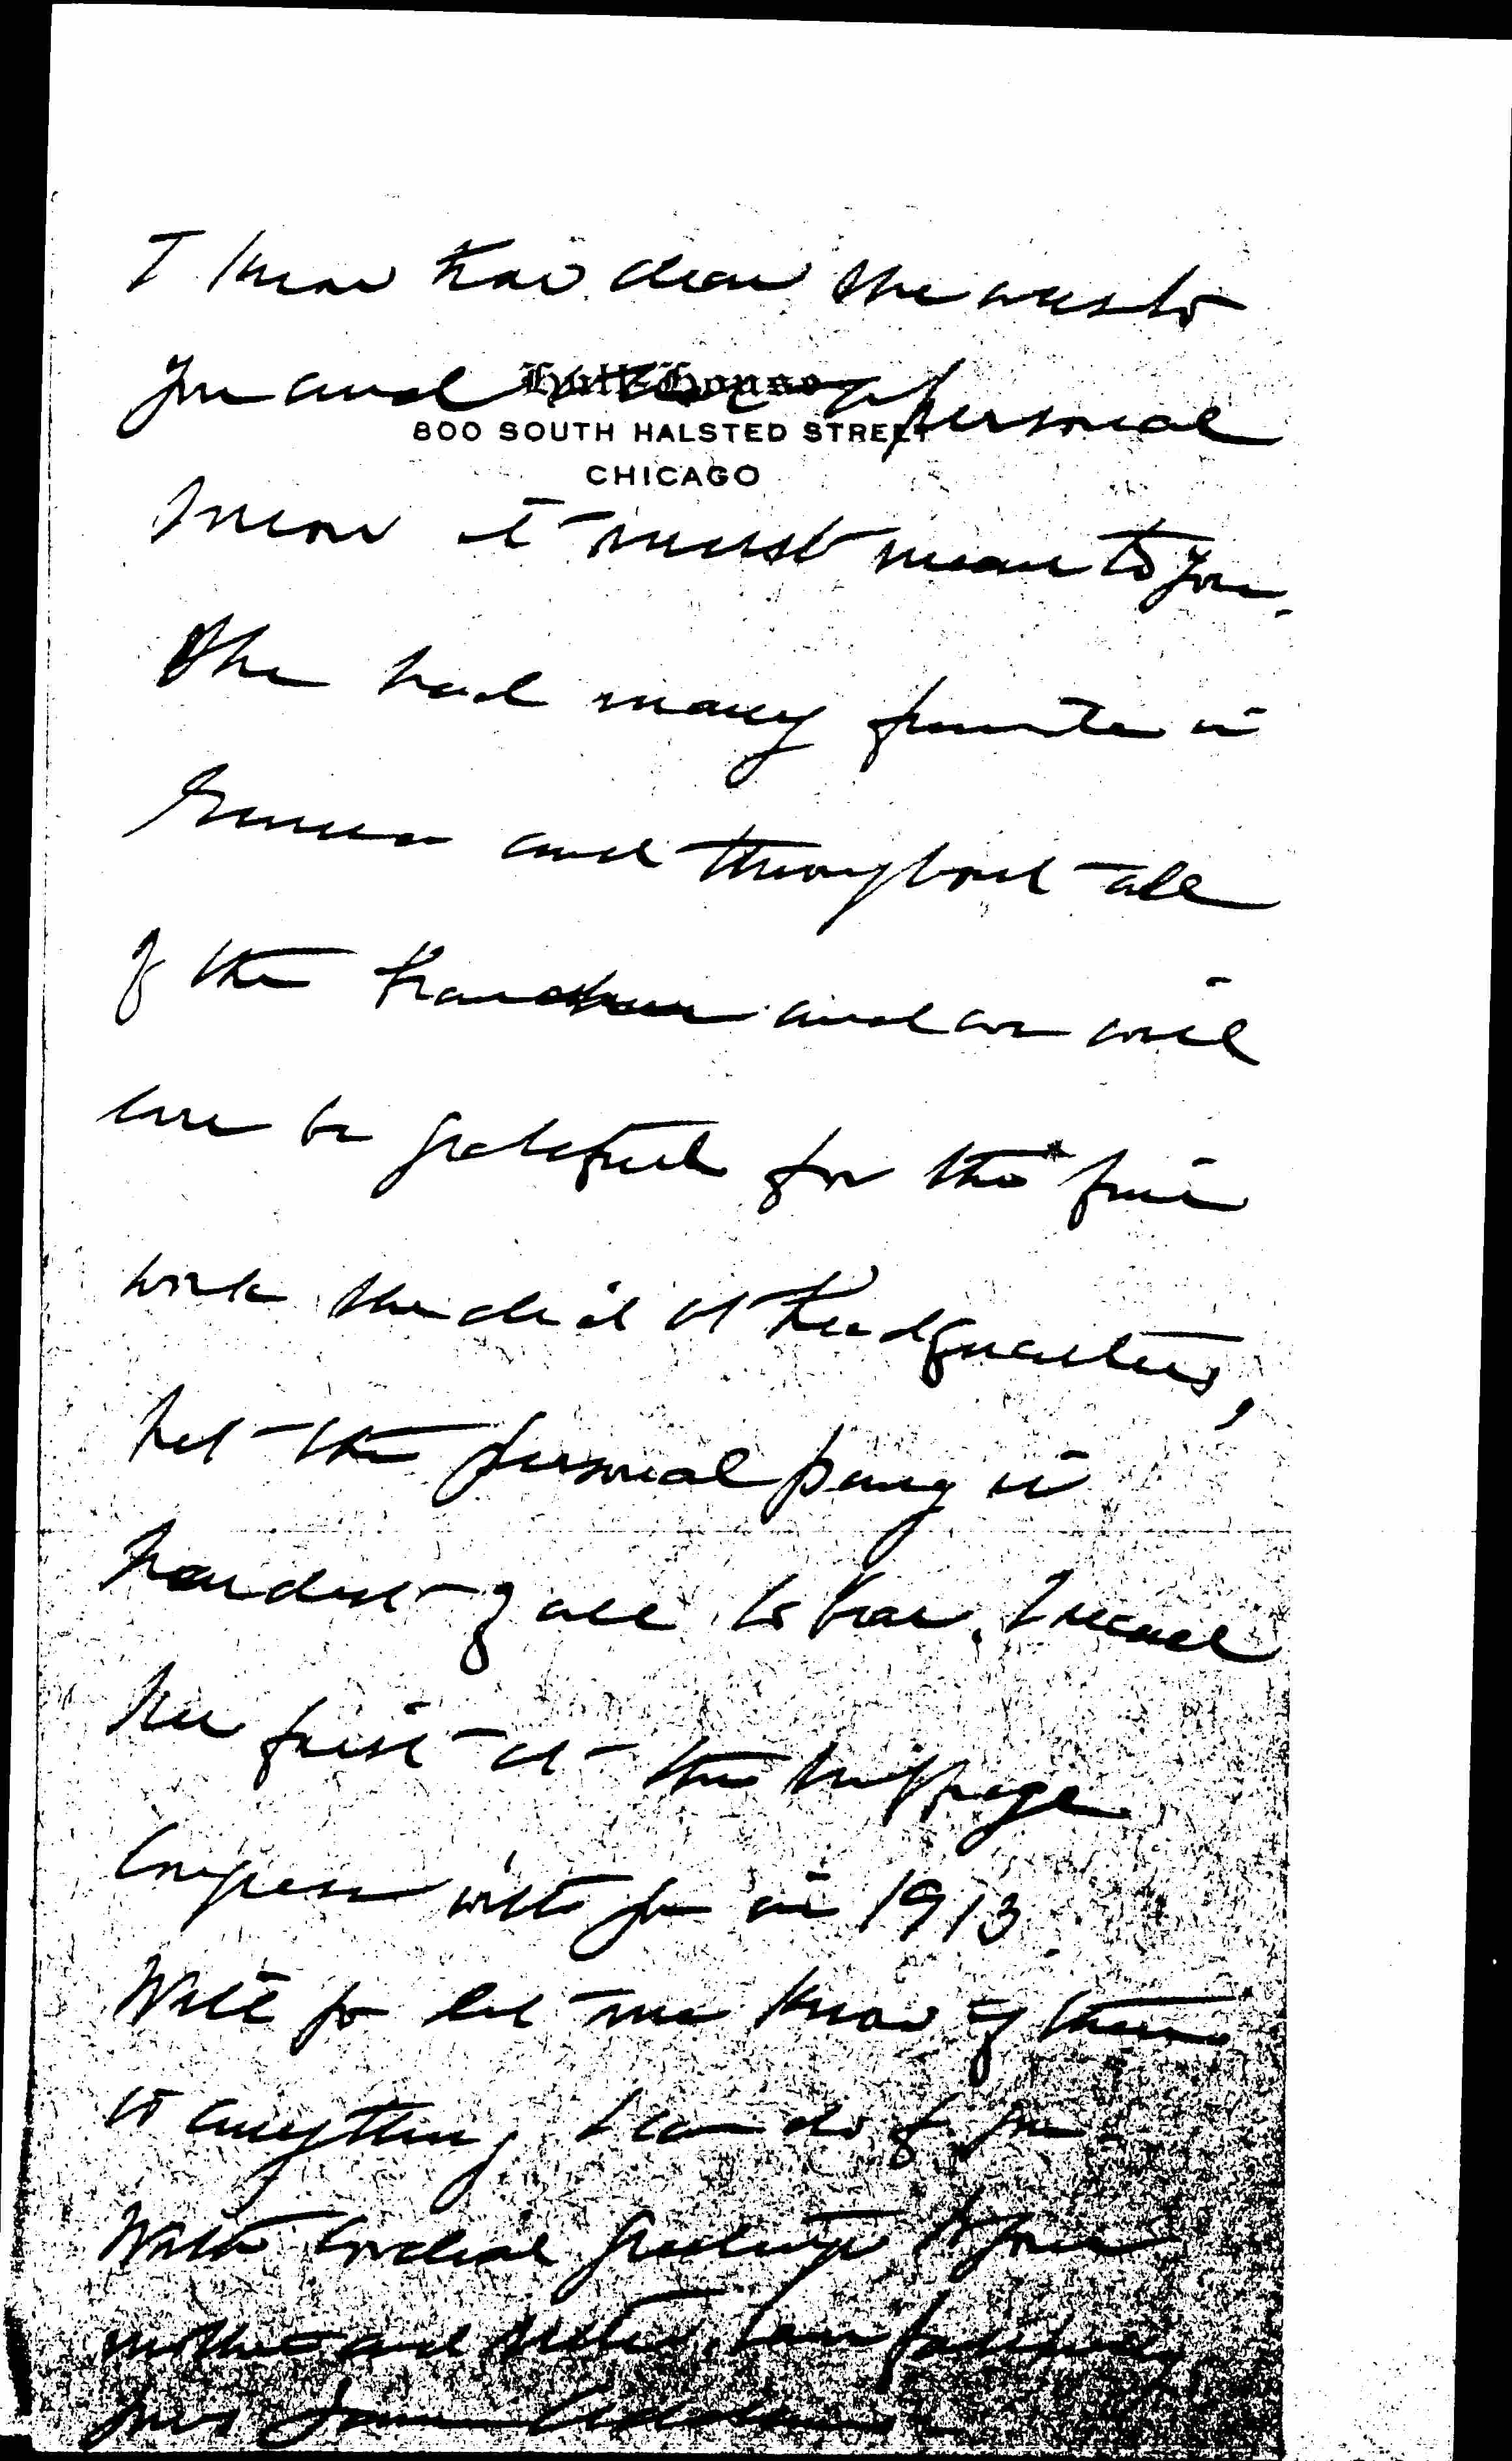 I know how dear she was to
Hull-House
you and what a personal
800 SOUTH HALSTED STREET
CHICAGO
sorrow it must mean to you.
She had many friends in
Geneva and throughout all
of the branches and we will
ever be grateful for the fine
work she did at Headquarters,
but the personal pang is
hardest of all to bear. I recall
her first at the Suffrage
Congress with you in 1913
Will you let me know if there
is anything I can do for you
With cordial greetings to your
mother and sister, I am faithfully
yours Jane Addams